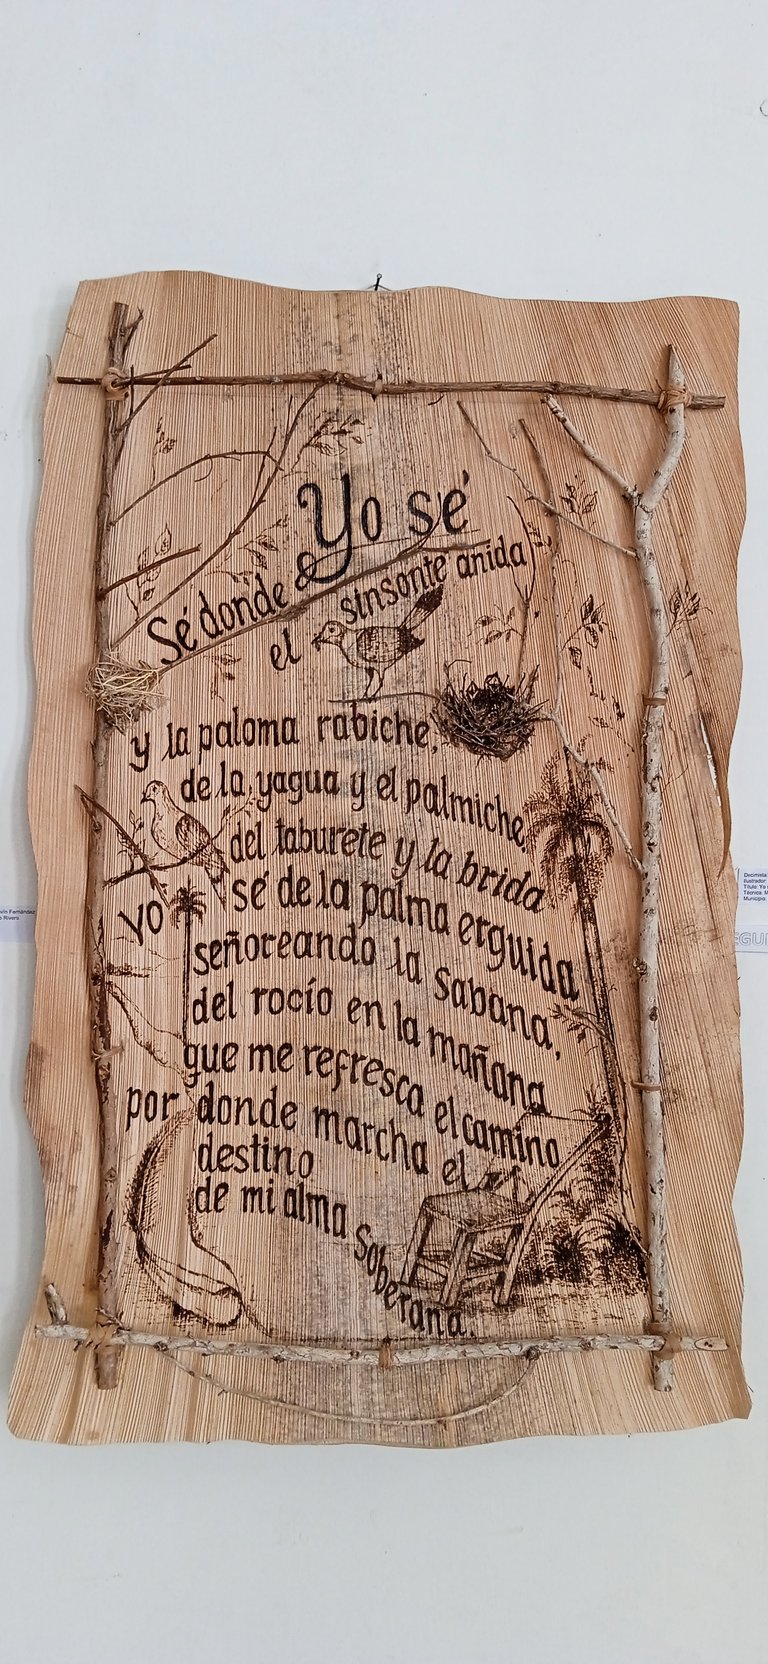 Yo sé
Sé donde
el sinsonte anida
y la paloma rabiche,
de la yagua y el palmiche,
del taburete y la brida
yo sé de la palma erguida
señoreando la sabana,
del rocío en la mañana
que me refresca el camino
por donde marcha el
destino
de mi alma soberana.
Fernández
Rivero
Decimista
Ilustrador
Título: Yo
Técnica: M
Municipio
EGU